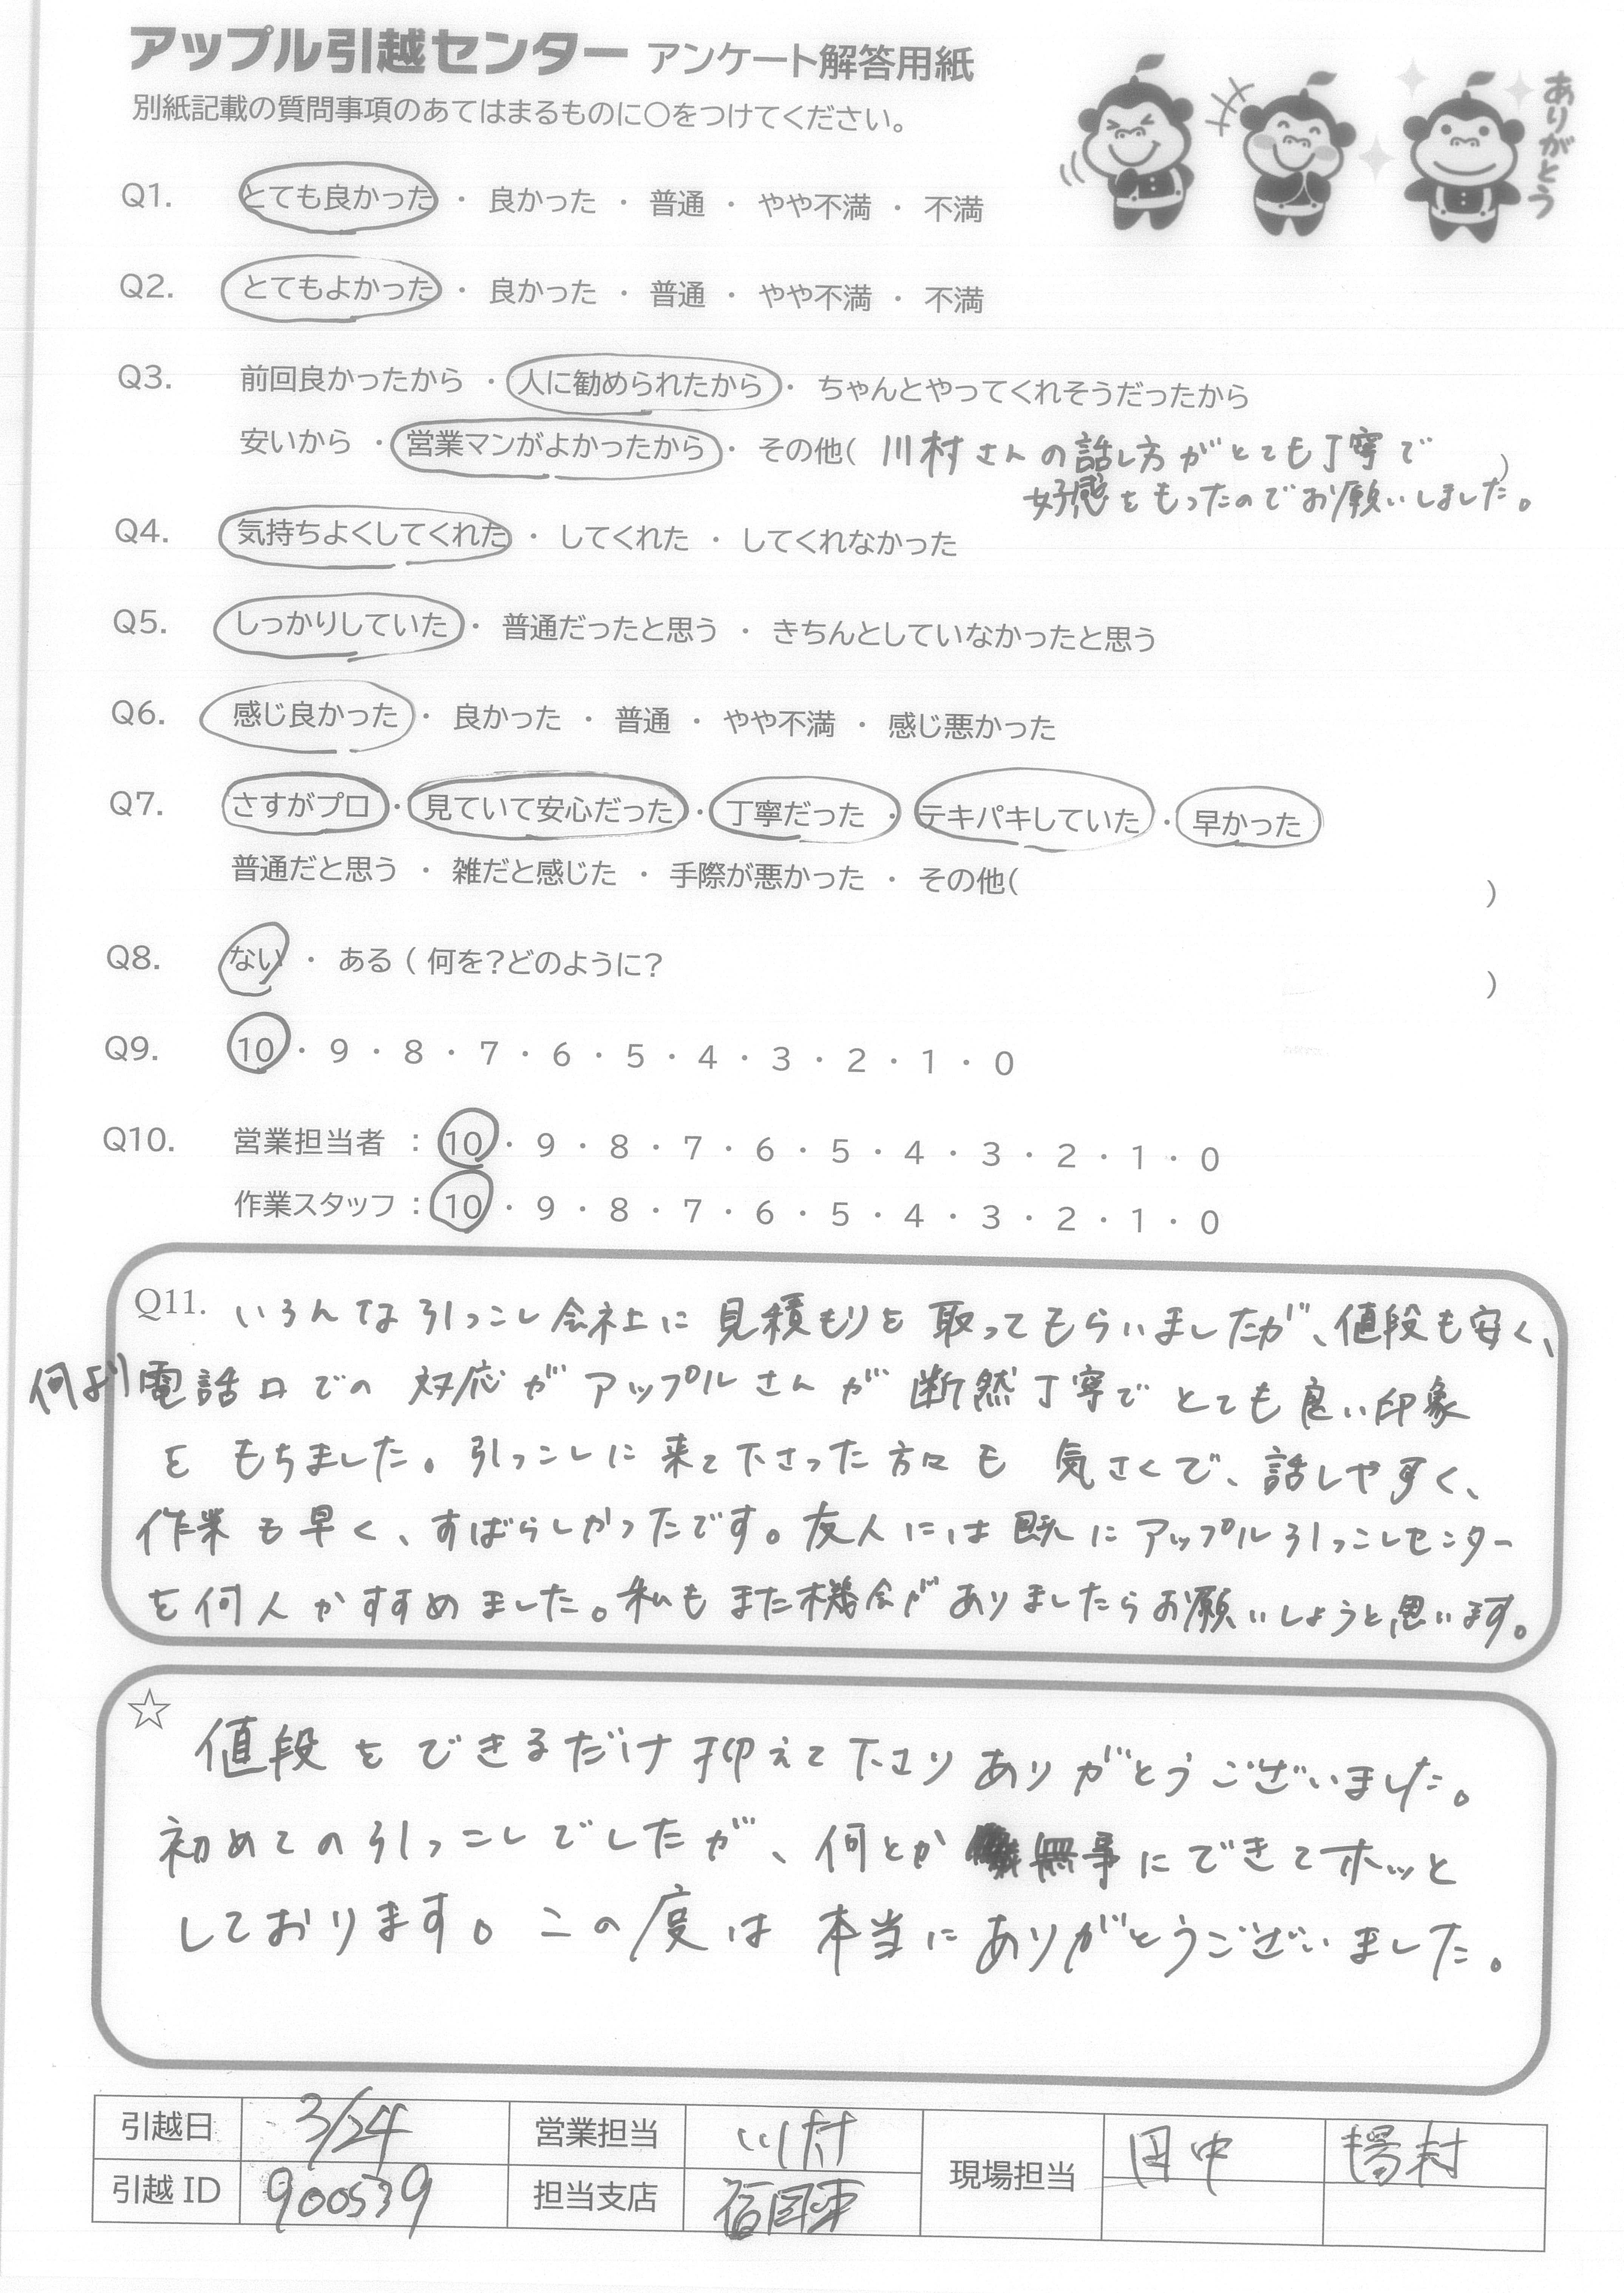 アップル引越センター アンケート解答用紙
別紙記載の質問事項のあてはまるものに○をつけてください。
ありがとう
Q1. とても良かった ・ 良かった ・ 普通 ・ やや不満 ・ 不満
Q2. とてもよかった ・ 良かった ・ 普通 ・ やや不満 ・ 不満
Q3. 前回良かったから ・ 人に勧められたから ・ ちゃんとやってくれそうだったから
安いから ・ 営業マンがよかったから ・ その他( 川村さんの話し方がとても丁寧で )
好感をもったのでお願いしました。
Q4. 気持ちよくしてくれた ・ してくれた ・ してくれなかった
Q5. しっかりしていた ・ 普通だったと思う ・ きちんとしていなかったと思う
Q6. 感じ良かった ・ 良かった ・ 普通 ・ やや不満 ・ 感じ悪かった
Q7. さすがプロ ・ 見ていて安心だった ・ 丁寧だった ・ テキパキしていた ・ 早かった
普通だと思う ・ 雑だと感じた ・ 手際が悪かった ・ その他( )
Q8. ない ・ ある ( 何を?どのように? )
Q9. 10 ・ 9 ・ 8 ・ 7 ・ 6 ・ 5 ・ 4 ・ 3 ・ 2 ・ 1 ・ 0
Q10. 営業担当者 : 10 ・ 9 ・ 8 ・ 7 ・ 6 ・ 5 ・ 4 ・ 3 ・ 2 ・ 1 ・ 0
作業スタッフ : 10 ・ 9 ・ 8 ・ 7 ・ 6 ・ 5 ・ 4 ・ 3 ・ 2 ・ 1 ・ 0
Q11. いろんな引っこし会社に見積もりを取ってもらいましたが、値段も安く、
何より電話口での対応がアップルさんが断然丁寧でとても良い印象
をもちました。引っこしに来て下さった方々も気さくで、話しやすく、
作業も早く、すばらしかったです。友人には既にアップル引っこしセンター
を何人かすすめました。私もまた機会がありましたらお願いしようと思います。
☆
値段をできるだけ抑えて下さりありがとうございました。
初めての引っこしでしたが、何とか無事にできてホッと
しております。この度は本当にありがとうございました。
引越日 3/24 営業担当 川村 現場担当 田中
引越 ID 900539 担当支店 福岡東